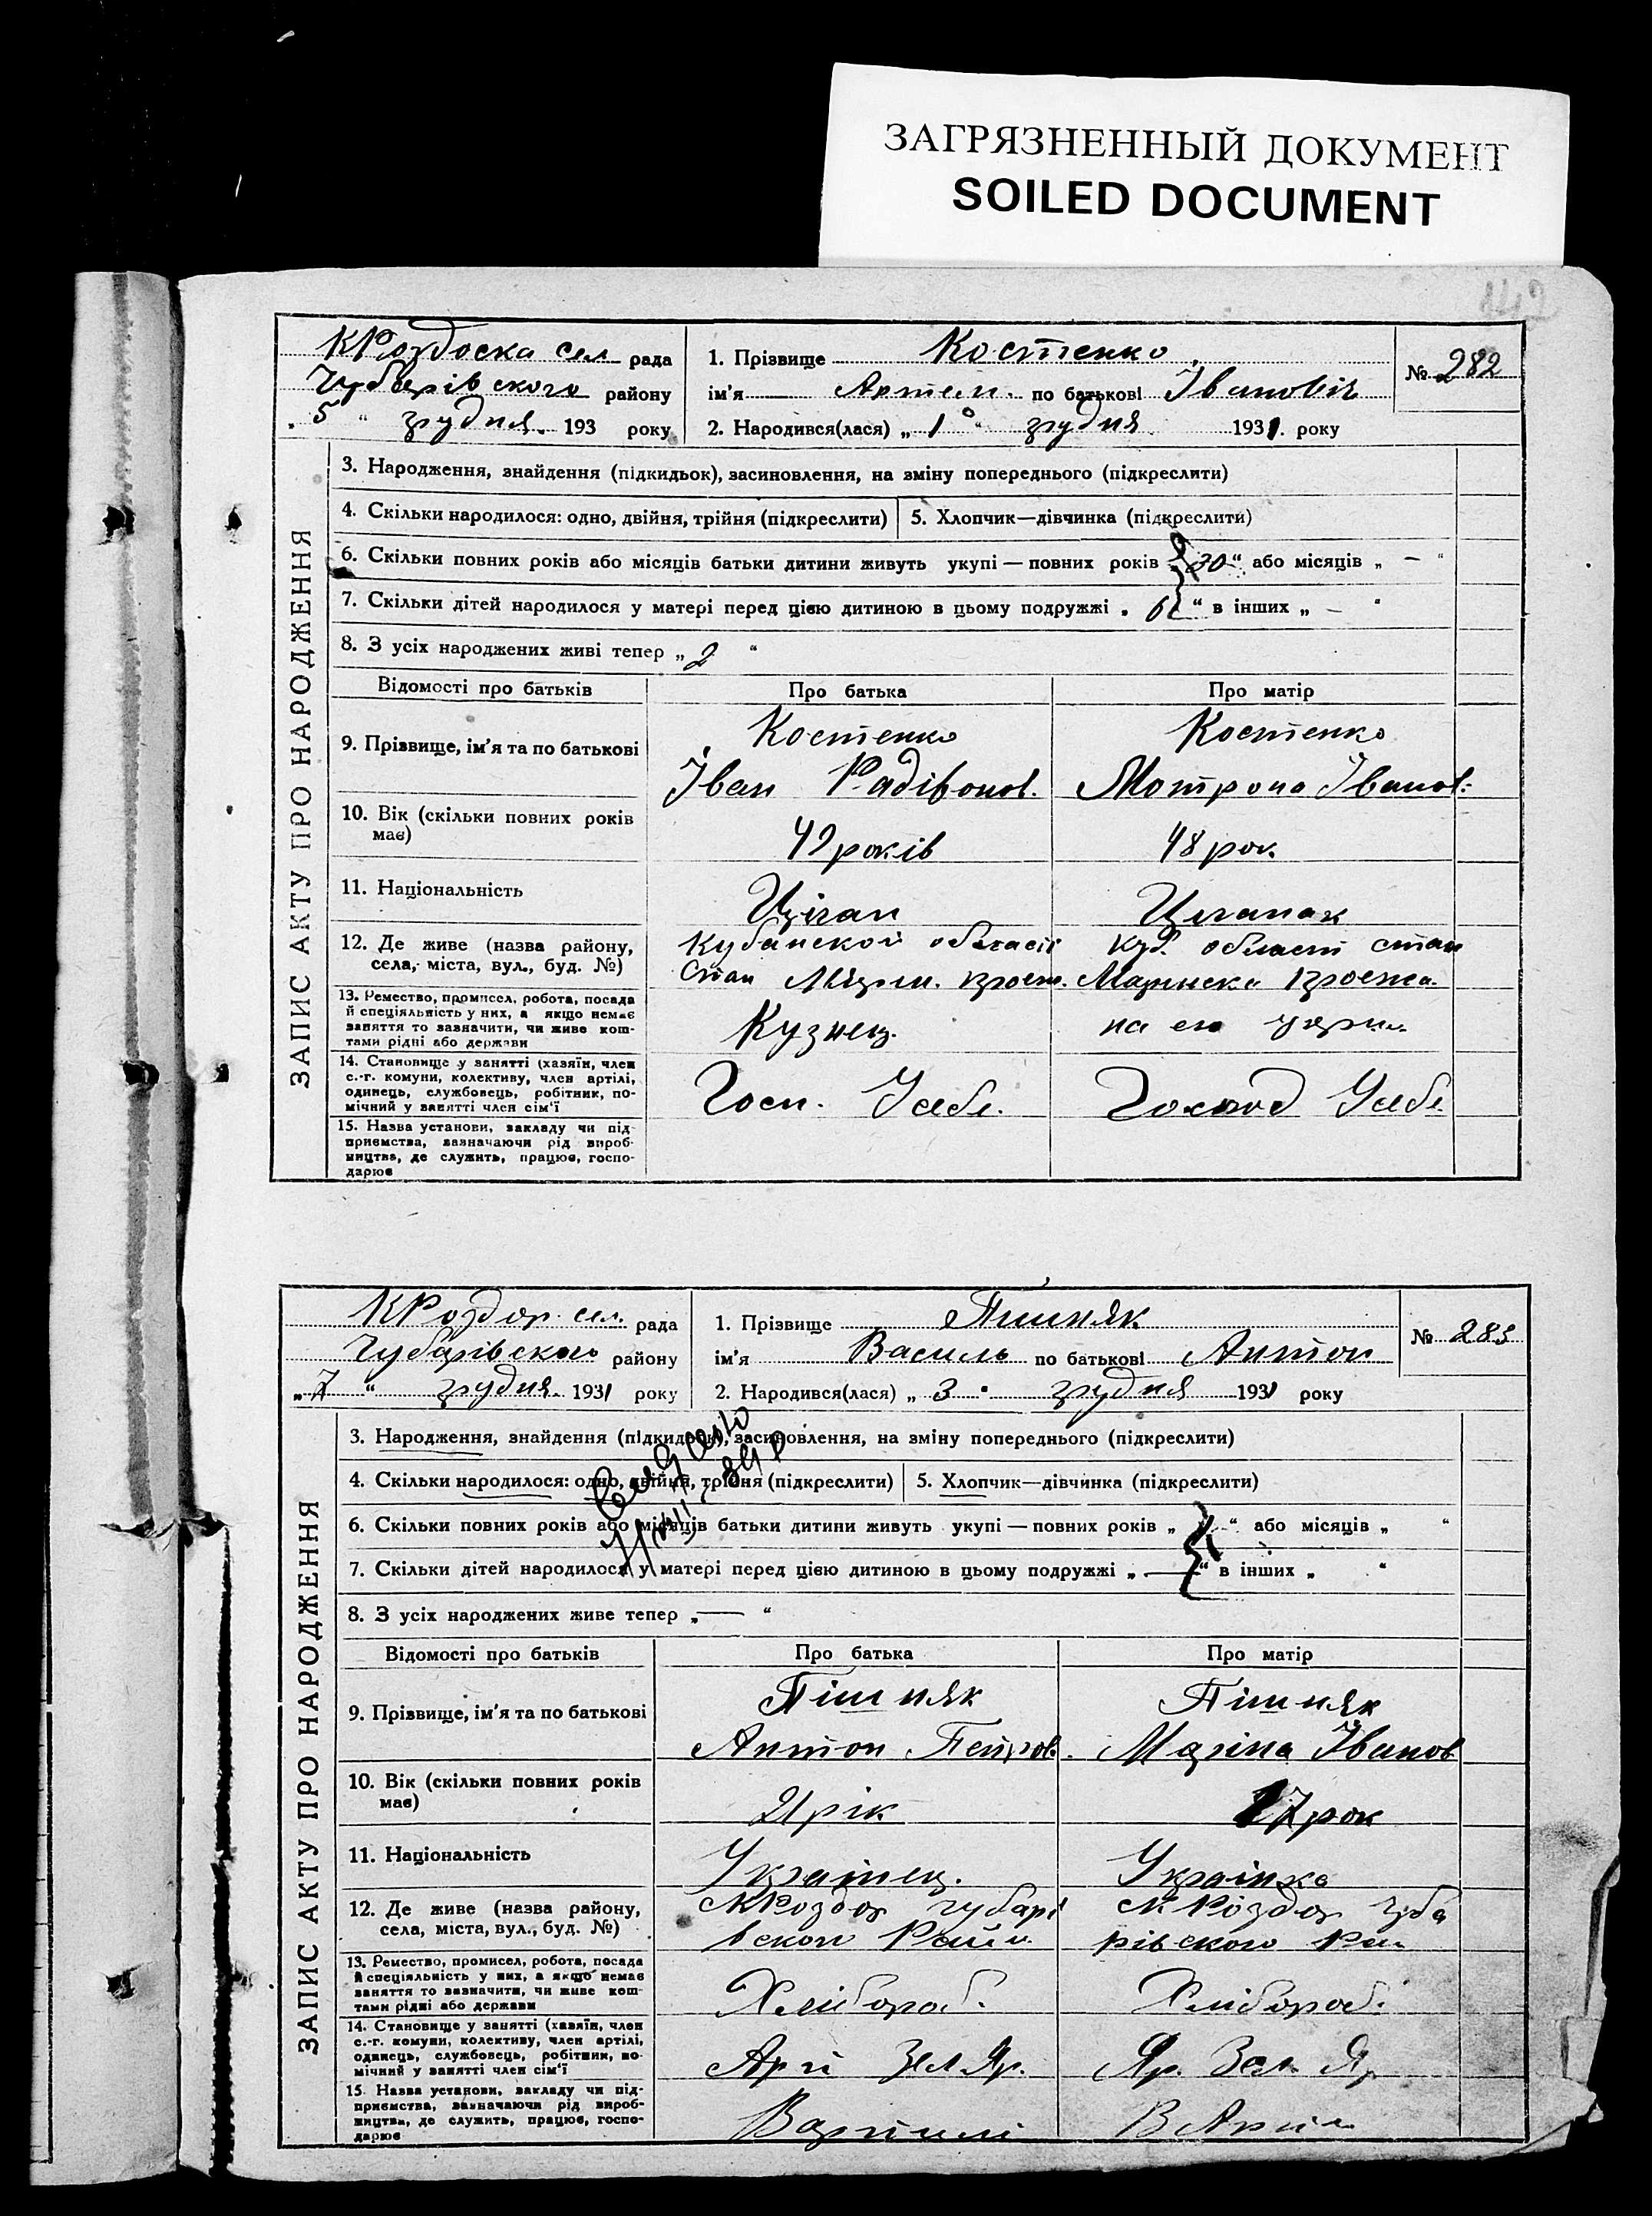 ЗАГРЯЗНЕННЫЙ ДОКУМЕНТ
SOILED DOCUMENT
142
ЗАПИС АКТУ ПРО НАРОДЖЕННЯ
КРоздоска сел рада
Чубарівського району
„ 5 “ грудня. 193 року
1. Прізвище Костенко
ім'я Артем. по батькові Івановіч
2. Народився(лася) „ 1 “ грудня 1931. року
№ 282
3. Народження, знайдення (підкидьок), засиновлення, на зміну попереднього (підкреслити)
4. Скільки народилося: одно, двійня, трійня (підкреслити) 5. Хлопчик—дівчинка (підкреслити)
6. Скільки повних років або місяців батьки дитини живуть укупі — повних років „ 30 “ або місяців „ — “
7. Скільки дітей народилося у матері перед цією дитиною в цьому подружжі „ 6 “ в інших „ — “
8. З усіх народжених живі тепер „ 2 “
Відомості про батьків Про батька Про матір
9. Прізвище, ім'я та по батькові
Костенко Костенко
Іван Радівонов. Мотрона Іванов.
10. Вік (скільки повних років
має)
49 років 48 рок.
11. Національність
Циган
12. Де живе (назва району,
села, міста, вул., буд. №)
Кубанской области Куб. област стан
Стан
13. Ремество, промисел, робота, посада
й спеціяльність у них, а якщо немає
заняття то зазначити, чи живе кош-
тами рідні або держави
Кузнец. на его
14. Становище у занятті (хазяїн, член
с.-г. комуни, колективу, член артілі,
одинець, службовець, робітник, по-
мічний у занятті член сім'ї
Госп.
15. Назва установи, закладу чи під-
приємства, зазначаючи рід вироб-
ництва, де служить, працює, госпо-
дарює
ЗАПИС АКТУ ПРО НАРОДЖЕННЯ
КРоздор. сел. рада
Чубарівского району
„ 7 “ грудня. 1931 року
1. Прізвище Пішняк
ім'я Василь по батькові Антон
2. Народився(лася) „ 3 “ грудня 1931 року
№ 283
3. Народження, знайдення (підкидьок), засиновлення, на зміну попереднього (підкреслити)
4. Скільки народилося: одно, двійня, трійня (підкреслити) 5. Хлопчик—дівчинка (підкреслити)
6. Скільки повних років або місяців батьки дитини живуть укупі — повних років „ 1 “ або місяців „ “
7. Скільки дітей народилося у матері перед цією дитиною в цьому подружжі „ — “ в інших „ “
8. З усіх народжених живе тепер „ — “
Відомості про батьків Про батька Про матір
9. Прізвище, ім'я та по батькові
Пішняк Пішняк
Антон Петров. Маріна Іванов
10. Вік (скільки повних років
має)
21 рік 17 рок
11. Національність
Українец. Українка
12. Де живе (назва району,
села, міста, вул., буд. №)
с КРоздор чубарі с КРоздор Чуба
вского Райн рівского Рай
13. Ремество, промисел, робота, посада
й спеціяльність у них, а якщо немає
заняття то зазначити, чи живе кош-
тами рідні або держави
Хлібороб. Хлібороб.
14. Становище у занятті (хазяїн, член
с.-г. комуни, колективу, член артілі,
одинець, службовець, робітник, по-
мічний у занятті член сім'ї
Арт Зел Яр. Яр. Зел. Яр
15. Назва установи, закладу чи під-
приємства, зазначаючи рід вироб-
ництва, де служить, працює, госпо-
дарює
Вартилі В Арти